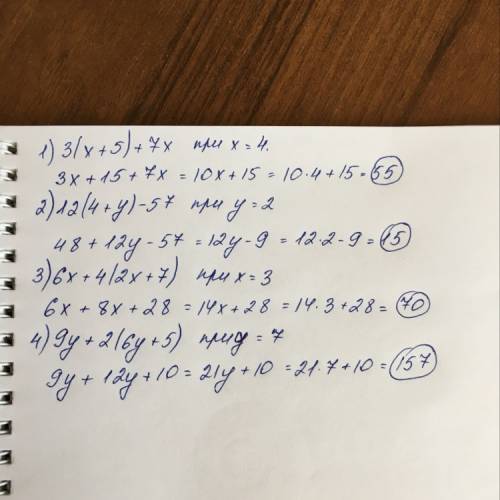 1) 3(x+5)+7x при x=4.
3x+15+7x=10x+15=10·4+15=55
2) 12(4+y)-57 при y=2
48+12y-57=12y-9=12·2-9=15
3) 6x+4(2x+7) при x=3
6x+8x+28=14x+28=14·3+28=70
4) 9y+2(6y+5) при y=7
9y+12y+10=21y+10=21·7+10=157